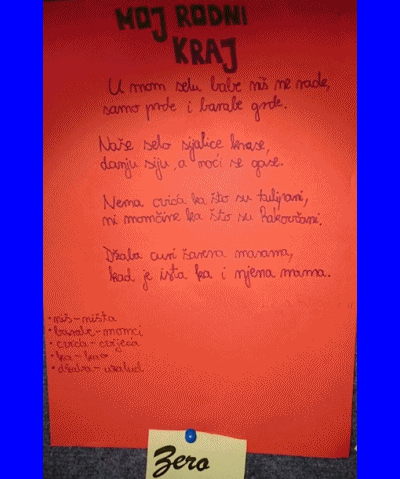 MOJ RODNI
KRAJ
U mom selu babe niš ne rade,
samo prde i barabe grde.
Naše selo sijalice krase,
danju siju, a noći se gase.
Nema cvića ka što su tulipani,
ni momčine ka što su Rakovčani.
Džaba curi šarena marama,
kad je ista ka i njena mama.
• niš - ništa
• barabe - momci
• cvića - cvijeća
• ka - kao
• džaba - uzalud
Zero